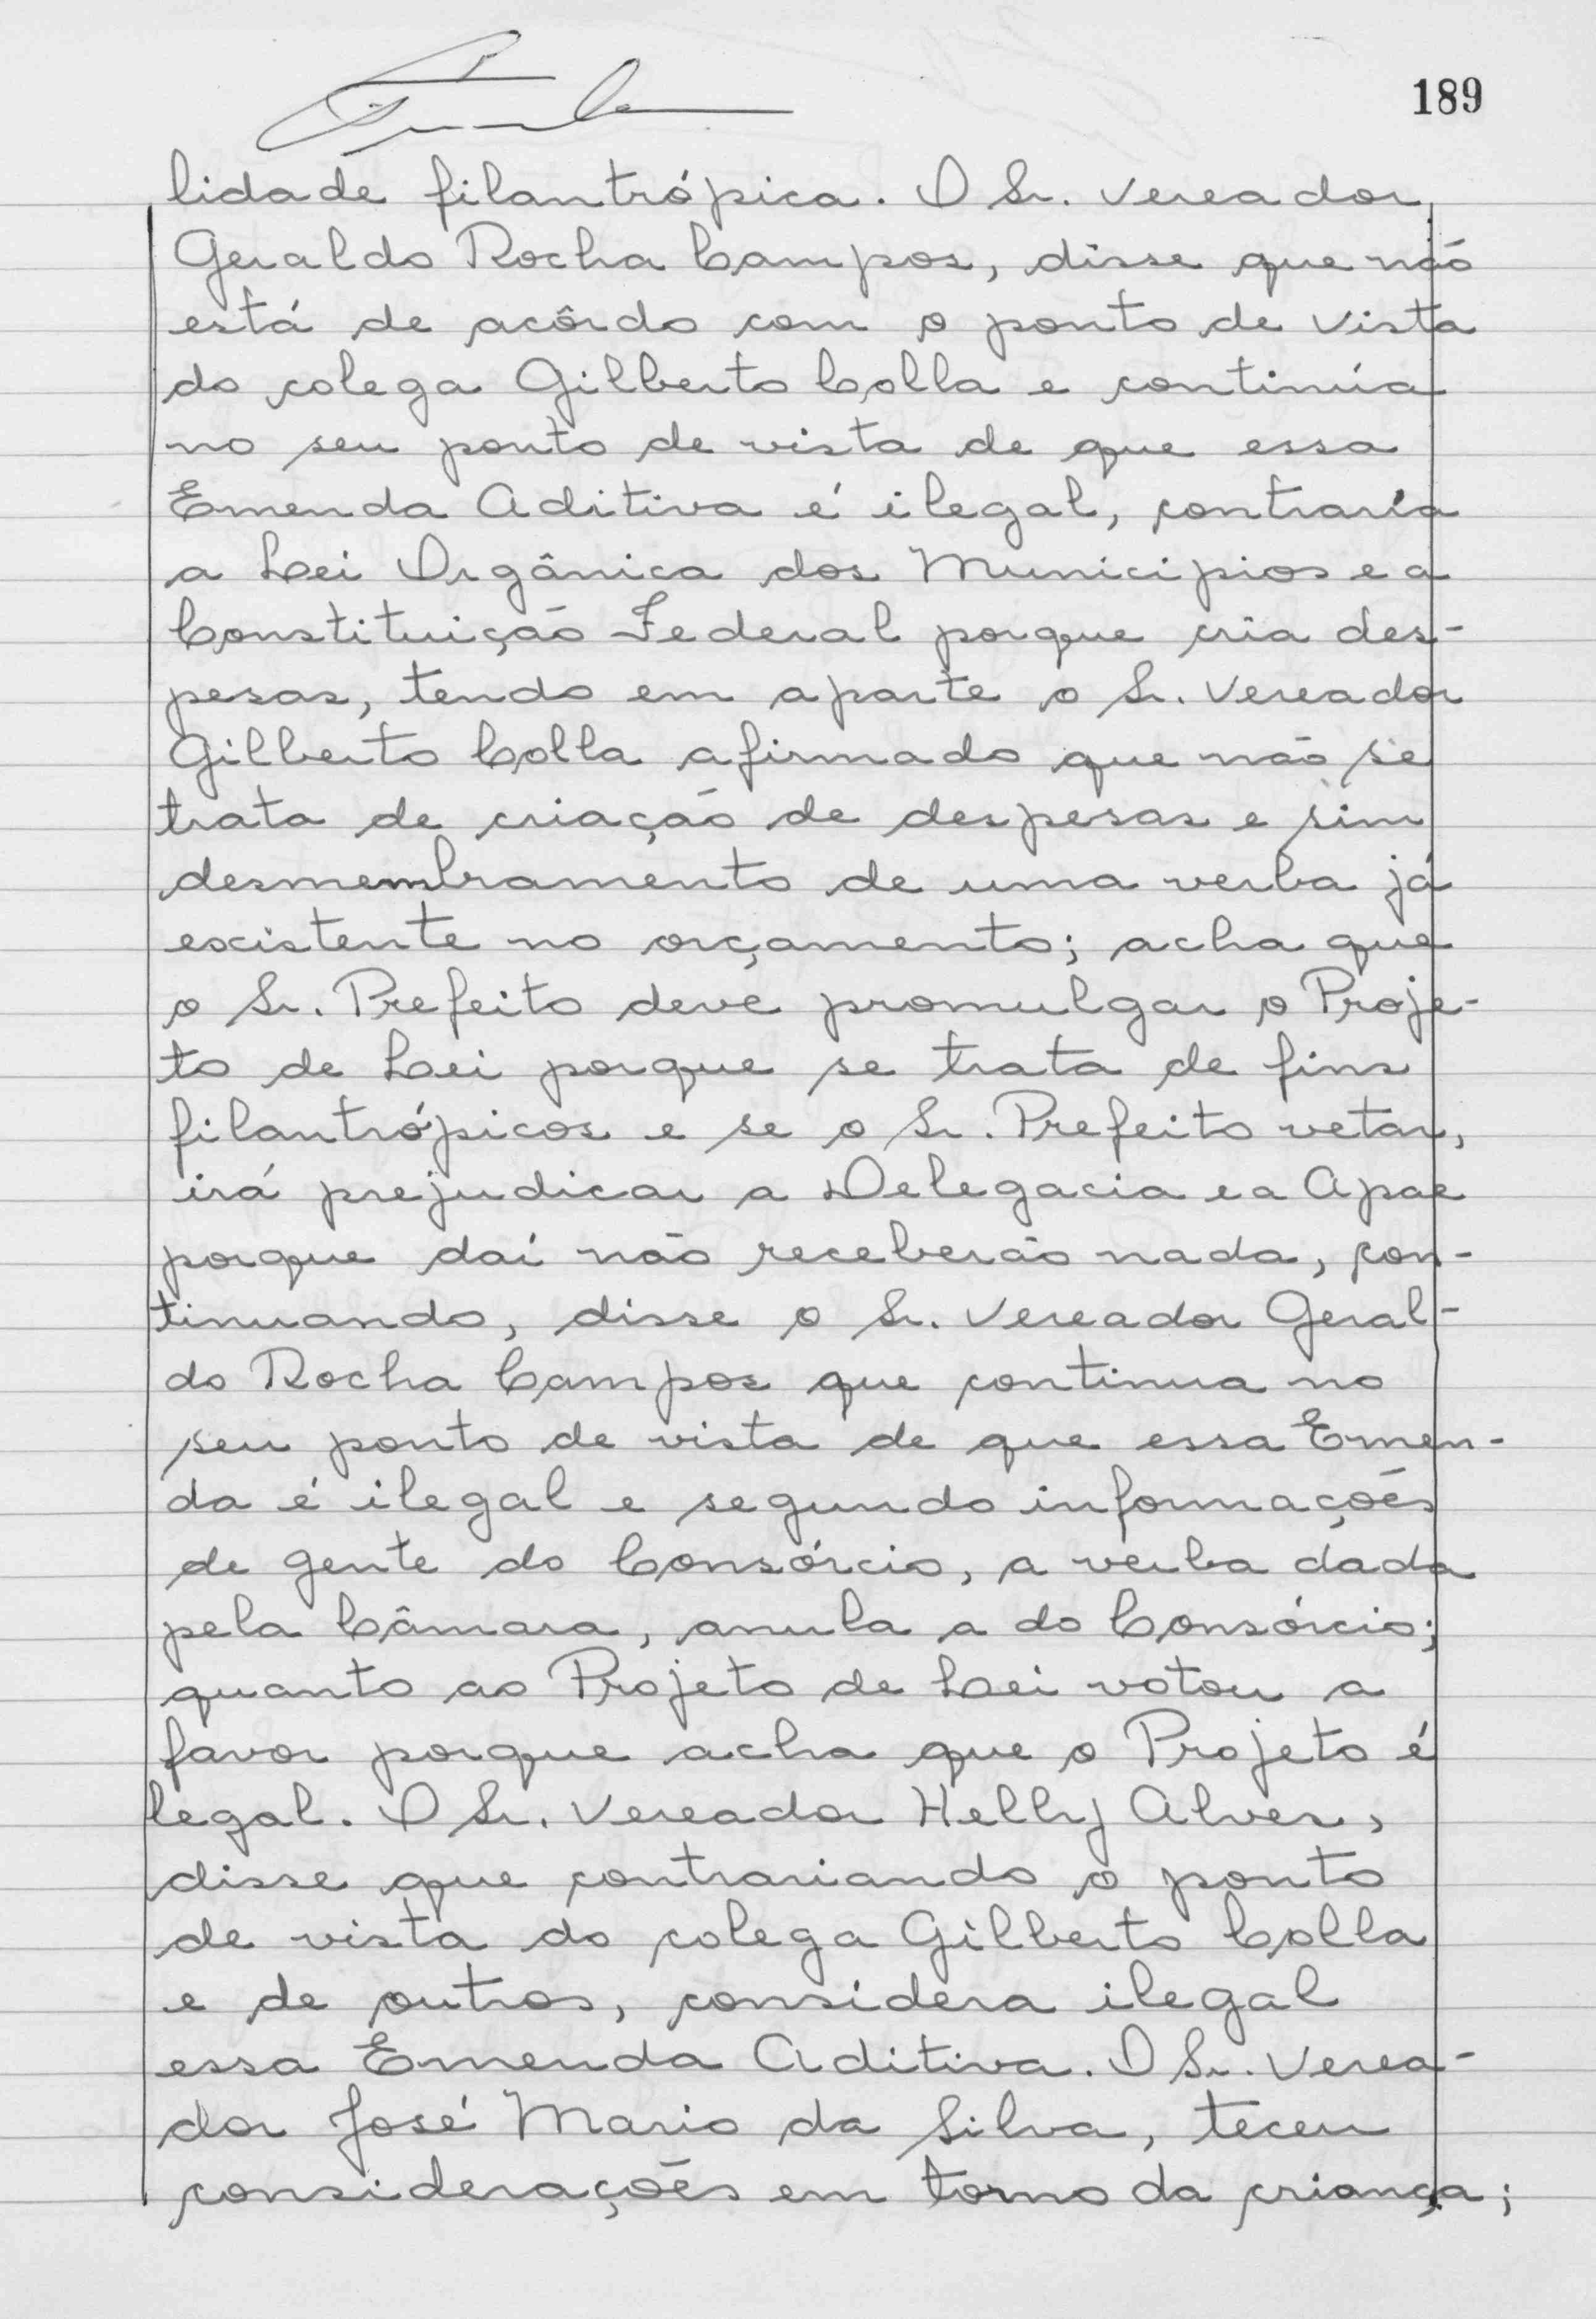 189
lidade filantrópica. O Sr. Vereador
Geraldo Rocha Campos, disse que não
está de acôrdo com o ponto de vista
do colega Gilberto Colla e continúa
no seu ponto de vista de que essa
Emenda Aditiva é ilegal, contraría
a Lei Orgânica dos Municipios e a
Constituição Federal porque cria des-
pesas, tendo em aparte o Sr. Vereador
Gilberto Colla afirmado que não se
trata de criação de despesas e sim
desmembramento de uma verba já
existente no orçamento; acha que
o Sr. Prefeito deve promulgar o Proje-
to de Lei porque se trata de fins
filantrópicos e se o Sr. Prefeito vetar,
irá prejudicar a Delegacia e a Apae
porque daí não receberão nada, con-
tinuando, disse o Sr. Vereador Geral-
do Rocha Campos que continua no
seu ponto de vista de que essa Emen-
da é ilegal e segundo informações
de gente do Consórcio, a verba dada
pela Câmara, anula a do Consórcio;
quanto ao Projeto de Lei votou a
favor porque acha que o Projeto é
legal. O Sr. Vereador Helly Alves,
disse que contrariando o ponto
de vista do colega Gilberto Colla
e de outros, considera ilegal
essa Emenda Aditiva. O Sr. Verea-
dor José Mario da Silva, teceu
considerações em torno da criança;